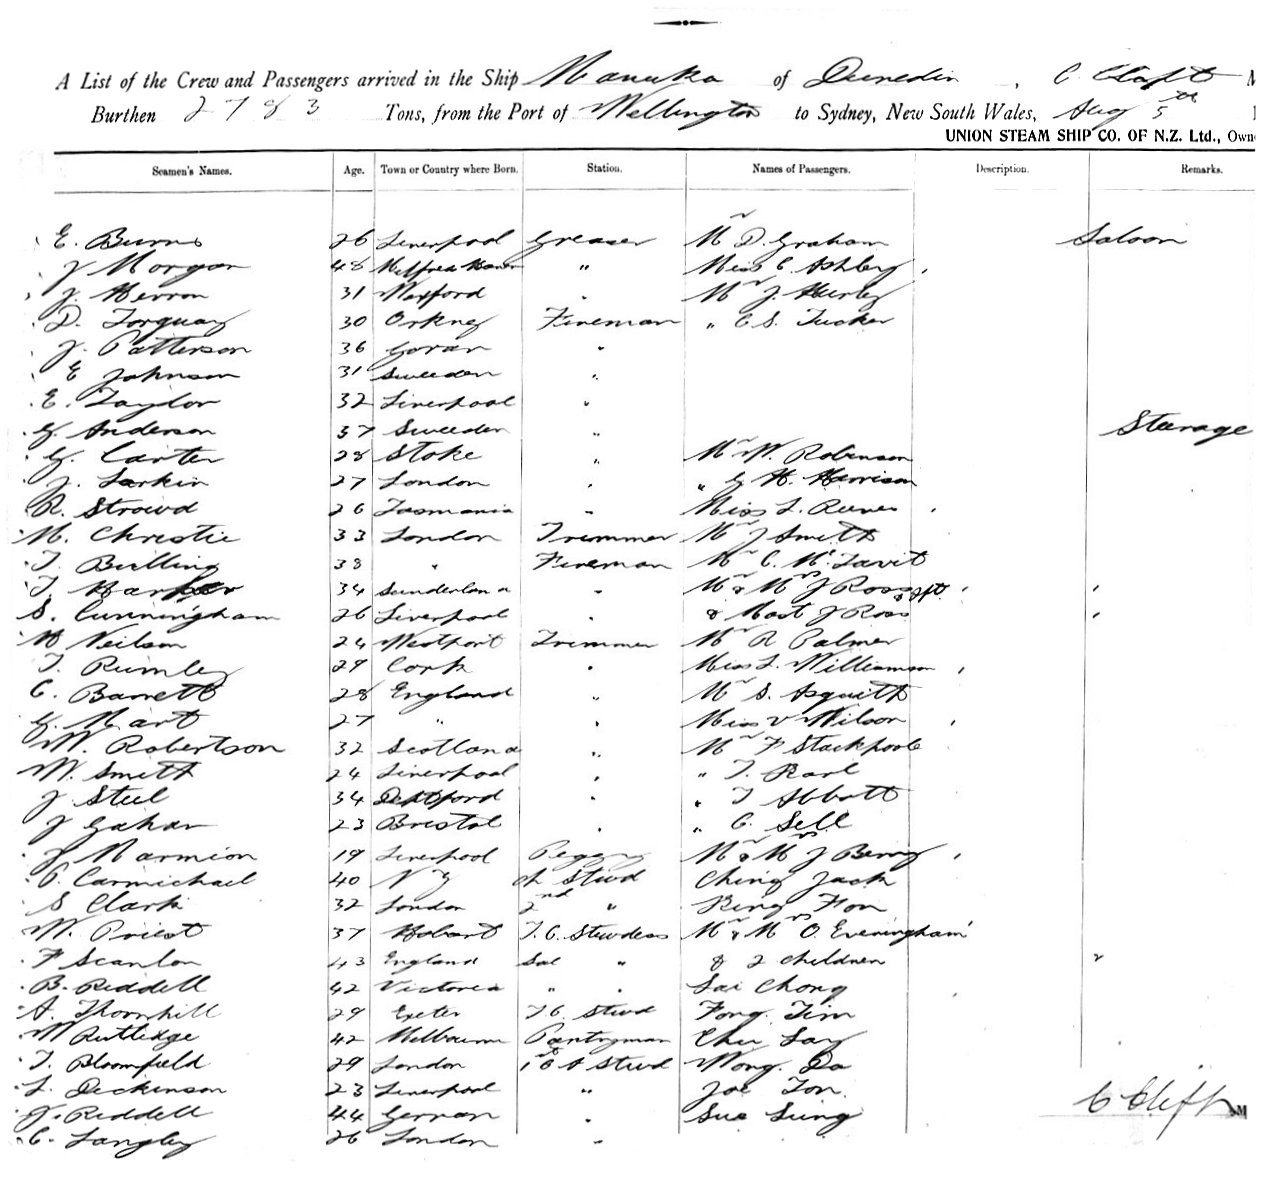 A List of the Crew and Passengers arrived in the Ship Manuka of Dunedin, C. Clift M
Burthen 2783 Tons, from the Port of Wellington to Sydney, New South Wales, Aug 5th
UNION STEAM SHIP CO. OF N.Z. Ltd., Own
Seamen's Names. Age. Town or Country where Born. Station. Names of Passengers. Description. Remarks.
E. Burns 26 Liverpool Greaser Mr D. Graham Saloon
J Morgan 48 Milford Haven " Miss C. Ashley
J. Herron 31 Wexford " Mr J. Hurley
D. Torquay 30 Orkney Fireman " C S. Tucker
J. Patterson 36 Govan "
E Johnson 31 Sweeden "
E. Taylor 32 Liverpool "
G. Anderson 37 Sweeden " Stearage
G. Carter 28 Stoke " Mr W. Robinson
J. Larkin 27 London " " G H. Harrison
R. Strowd 26 Tasmania " Miss L. Reeves
M. Christie 33 London Trimmer Mr J Smith
T. Billing 38 " Fireman Mr C. McTavit
T. 34 Sunderland " Mr & Mrs J Ross &
S. Cunningham 26 Liverpool " & Mast J Ross
H Neilson 24 Westport Trimmer Mr R Palmer
T. Rumley 29 Cork " Miss L. Williamson
C. Barrett 28 England " Mr S. Asquith
G. Mart 27 " " Miss V Wilson
W. Robertson 32 Scotland " Mr F Stackpoole
W. Smith 24 Liverpool " " T. Karl
J Steel 34 Deptford " " T Abbott
J Gahan 23 Bristol " " C. Sell
J Marmion 19 Liverpool Peggy Mr & Mrs J Berry
P. Carmichael 40 N Z Ch Stwd Ching Jack
S Clark 32 London 2nd " King Fon
W. Priest 37 Hobart T. C. Stewdess Mr & Mrs O. Everingham
F Scanlon 43 England Sal " & 2 children
B. Riddell 42 Victoria " " Sai Chong
A. Thornhill 29 Exeter T C. Stwd Fong Tim
W Rutledge 42 Melbourne Pantryman Chu Lay
T. Bloomfield 29 London 1st B A Stwd Wong Do
L. Dickinson 23 Liverpool " Joe Ton
J. Riddell 44 Gerran " Sue Sung
C. Langley 26 London "
C Clift M